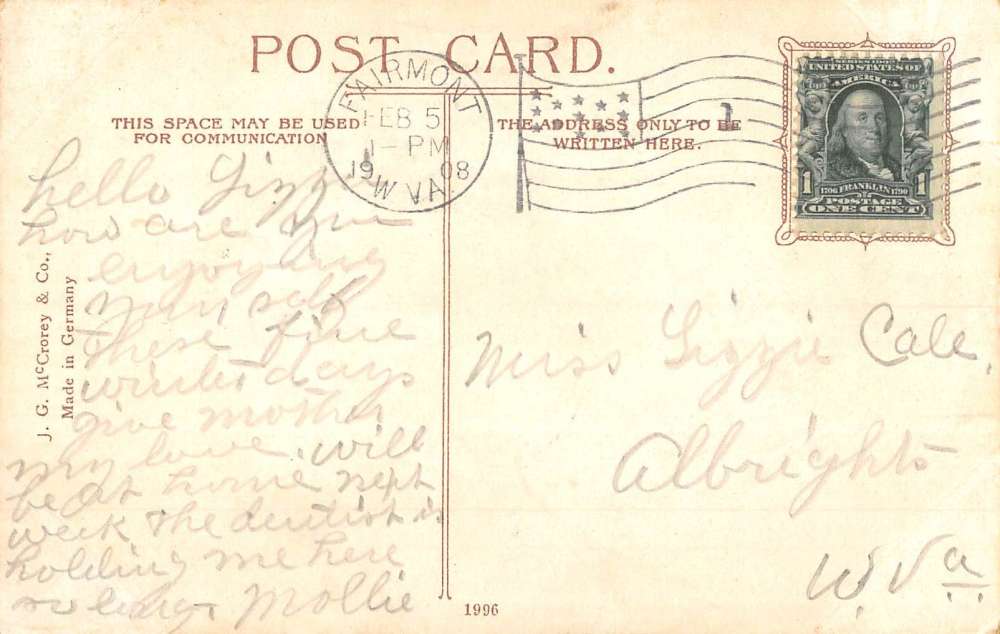 POST CARD.
THIS SPACE MAY BE USED
FOR COMMUNICATION
THE ADDRESS ONLY TO BE
WRITTEN HERE.
FAIRMONT
FEB 5
1-PM
1908
W.VA.
1
SERIES 1902
UNITED STATES OF
AMERICA
1706 FRANKLIN 1790
1 POSTAGE 1
ONE CENT
hello Lizzie
how are you
enjoying
your self
these fine
winter days
give mother
my love. will
be at home next
week the dentist is
holding me here
so long. Mollie
J. G. McCrorey & Co.,
Made in Germany
Miss Lizzie Cale,
Albrights
W. Va
1996